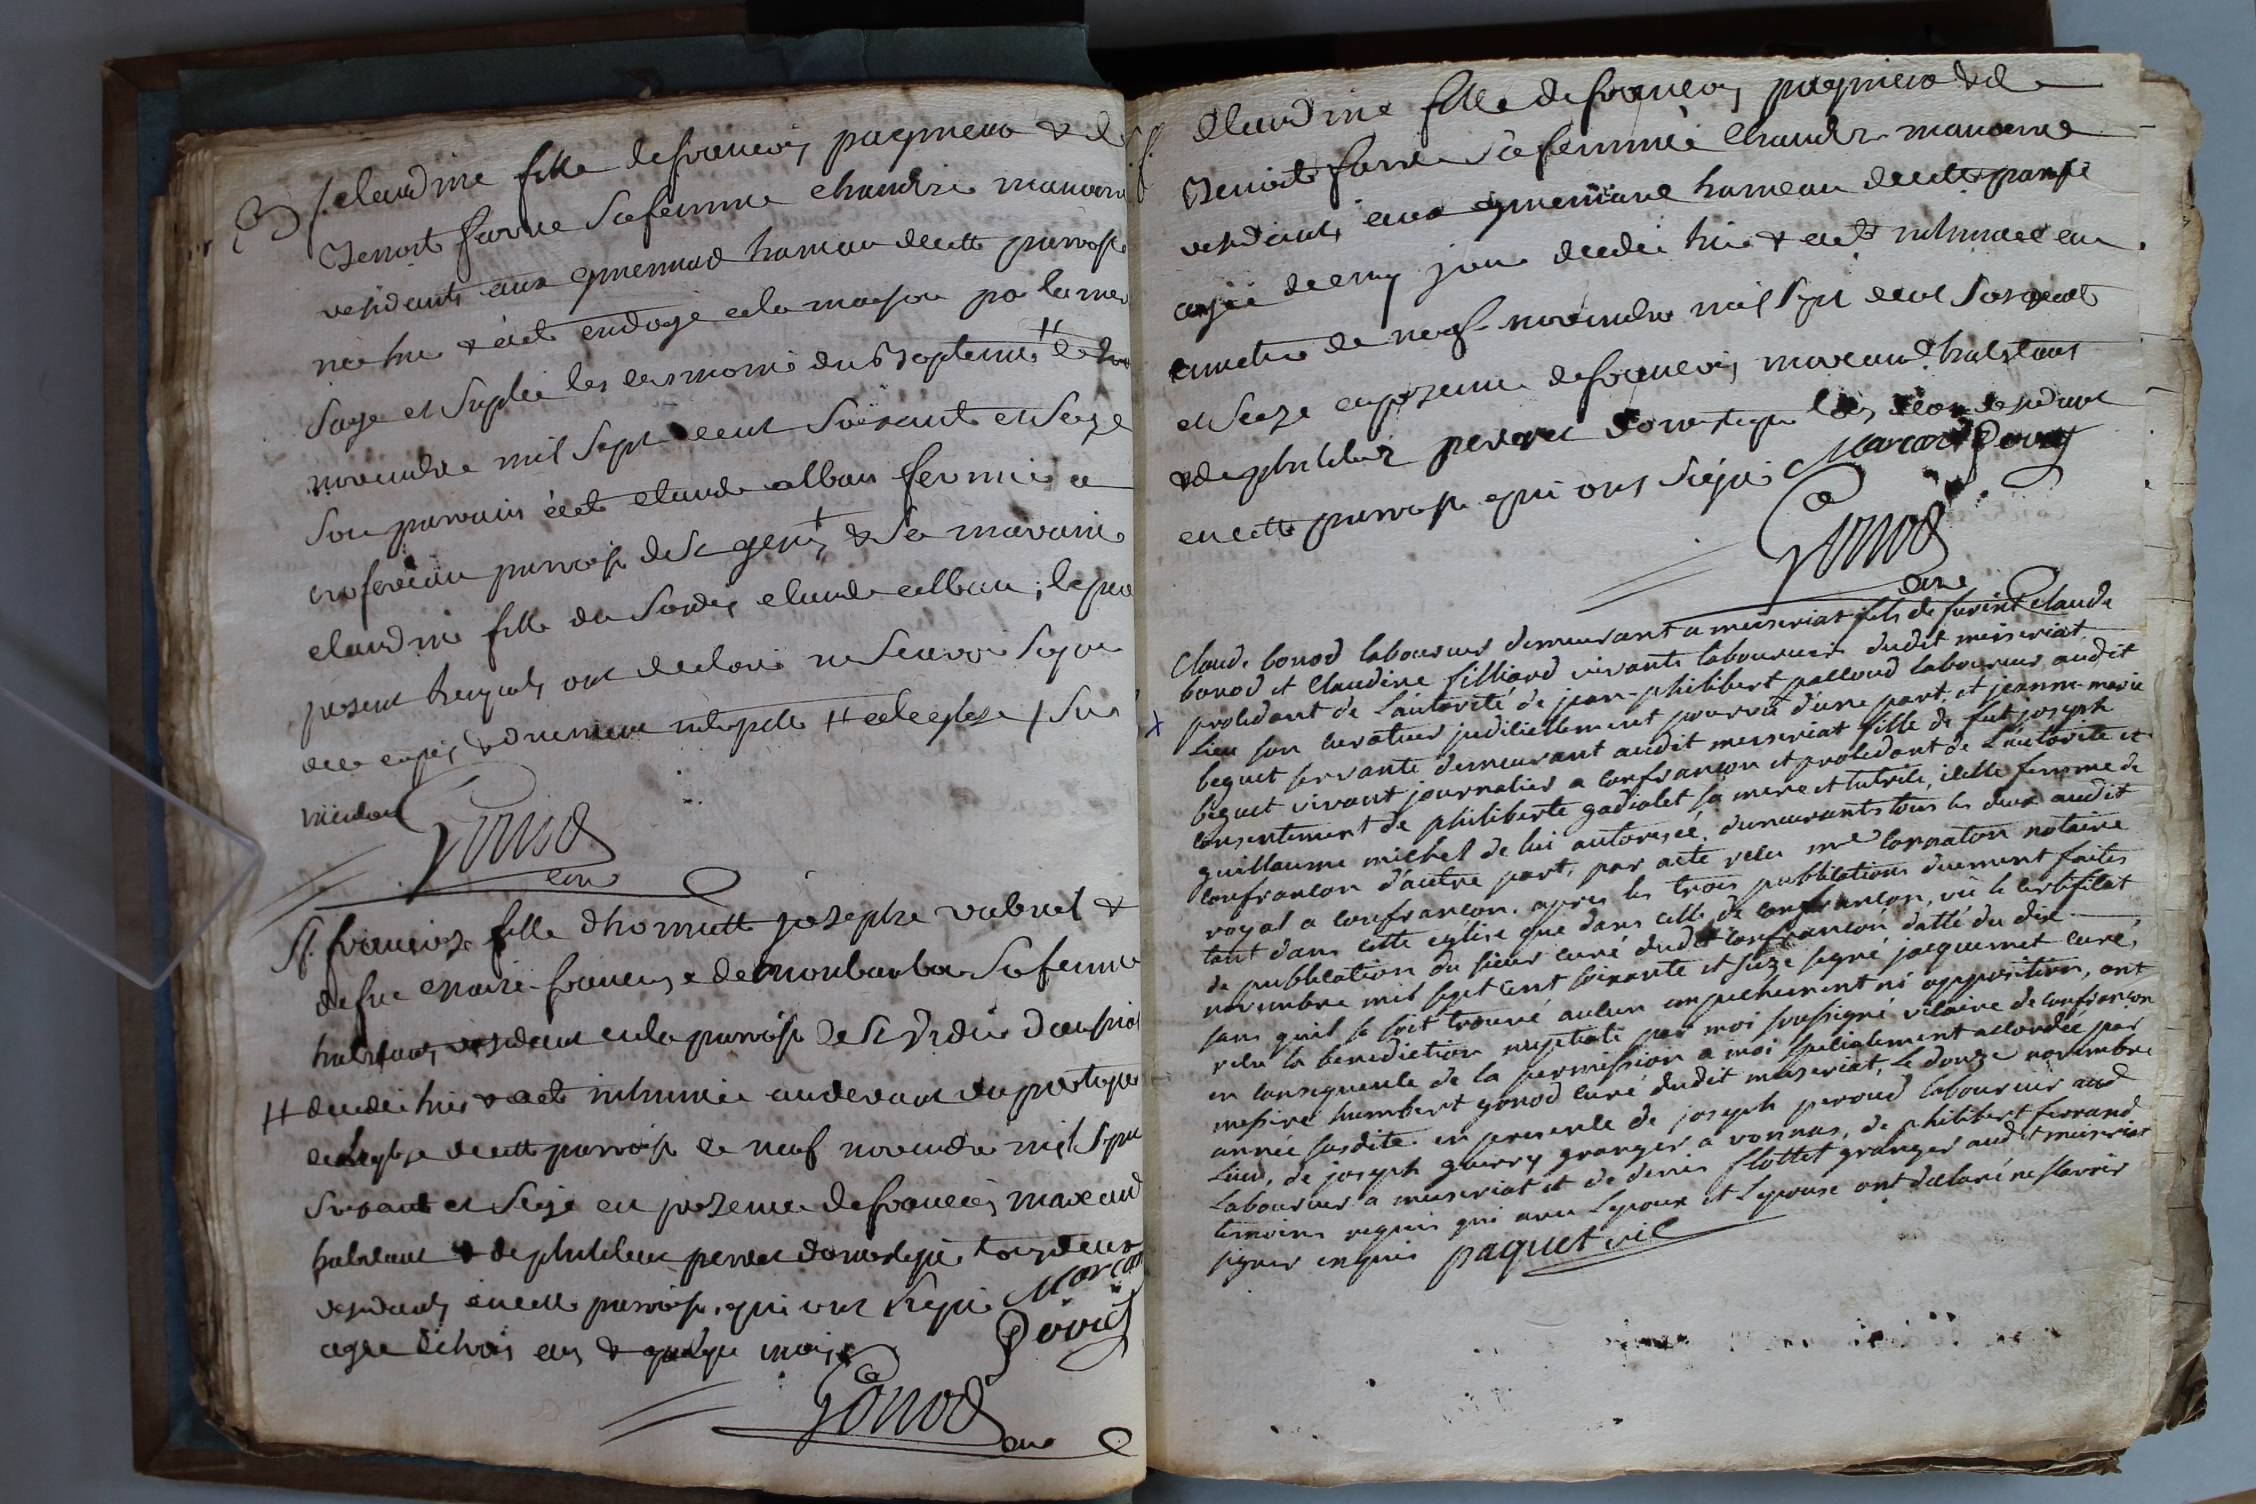 B /. claudine fille de francois pagnieux & de
Benoite farue sa femme chandr. manoeuvre
residants aux hameau de cette paroisse
née hier & a été endoyé a la maison par la
sage et suplée les ceremonie du st bapteme #
novembre mil sept cent soixante et seize
son parrain a été claude alban fermier a
paroisse de st genis + & sa maraine
claudine fille du susdit claude alban ; le
present ont declaré ne scavoir signer
de ce enquis & dument interpellé # a l'eglise / sur
Gonod
curé
Sf. francoise fille d'honnette josephe &
de fue marie francoise de sa femme
habitants residant en la paroisse de st didier
# decedée hier & a été inhumée au devant du
de l'eglise de cette paroisse le neuf novembre mil sept
soixante et seize en presence de francois
habitant & de philibert perret domestique tous deux
residants en cette paroisse, qui ont signé
agée de trois ans & quelque mois
Perret
Gonod
curé
Sf. Claudine fille de francois pagnieux & de
Benoite farue sa femme chandr. manoeuvre
residants aux hameau de cette paroisse
agée de cinq jours decedée hier & a été inhumée au
cimetiere le neuf novembre mil sept cent soixante
et seize en presence de francois habitant
& de philibert perret domestique tous deux residant
en cette paroisse qui ont signé Perret
Gonod
curé
Claude bonod laboureur demeurant a meiseriat fils de furent Claude
bonod et Claudine filliard vivants laboureurs dudit meiseriat
procedant de L'autorité de jean-philibert palloud laboureur audit
Lieu son curateur judiciellement pourvu d'une part, et jeanne-marie
bequet servante demeurant audit meiseriat fille de fut joseph
bequet vivant journalier a confrancon et procedant de L'autorité et
consentement de philiberte gadiolet sa mere et tutrice, icelle femme de
guillaume michel de lui autorisée, demeurants tous les deux audit
confrancon d'autre part, par acte recu me notaire
royal a confrancon, apres les trois publications duement faites
tant dans cette eglise que dans celle de confrancon, vu le certificat
de publication du sieur curé dudit confrancon datté du dix
novembre mil sept cent soixante et seize signé jacquemet curé,
sans qu'il se soit trouvé aucun empechement ni opposition, ont
recu la benediction nuptiale par moi soussigné vicaire de confrancon
en consequence de la permission a moi specialement accordée par
messire humbert gonod curé dudit meiseriat, Le douze novembre
année susdite en presence de joseph peroud laboureur aud
Lieu, de joseph guerry granger a vonnas, de philibert ferrand
Laboureur a meiseriat et de denis flottet granger audit meiseriat
temoins requis qui avec Lepoux et Lepouse ont declaré ne scavoir
signer enquis paquet vic